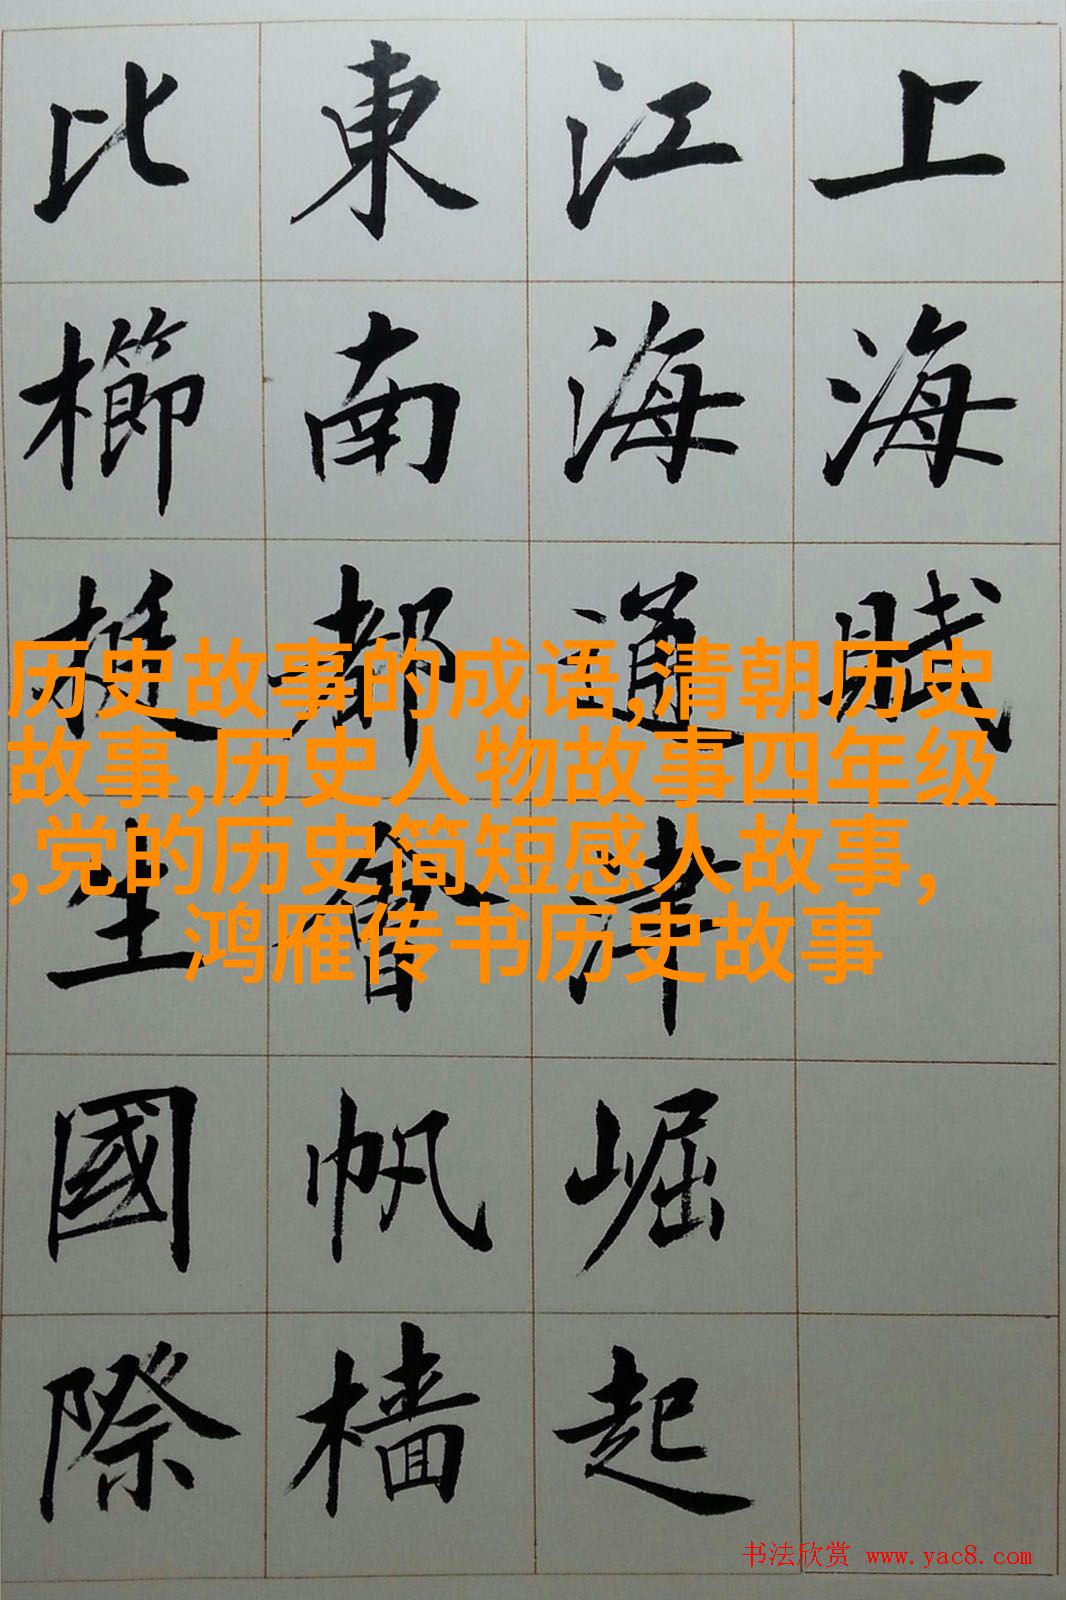 上海賦
江海通津崛起
東南都會帆檣
比櫛挺生國際
历史故事的成语,清朝历史
故事,历史人物故事四年级
,党的历史简短感人故事,
鸿雁传书历史故事
书法欣赏 www.yac8.com